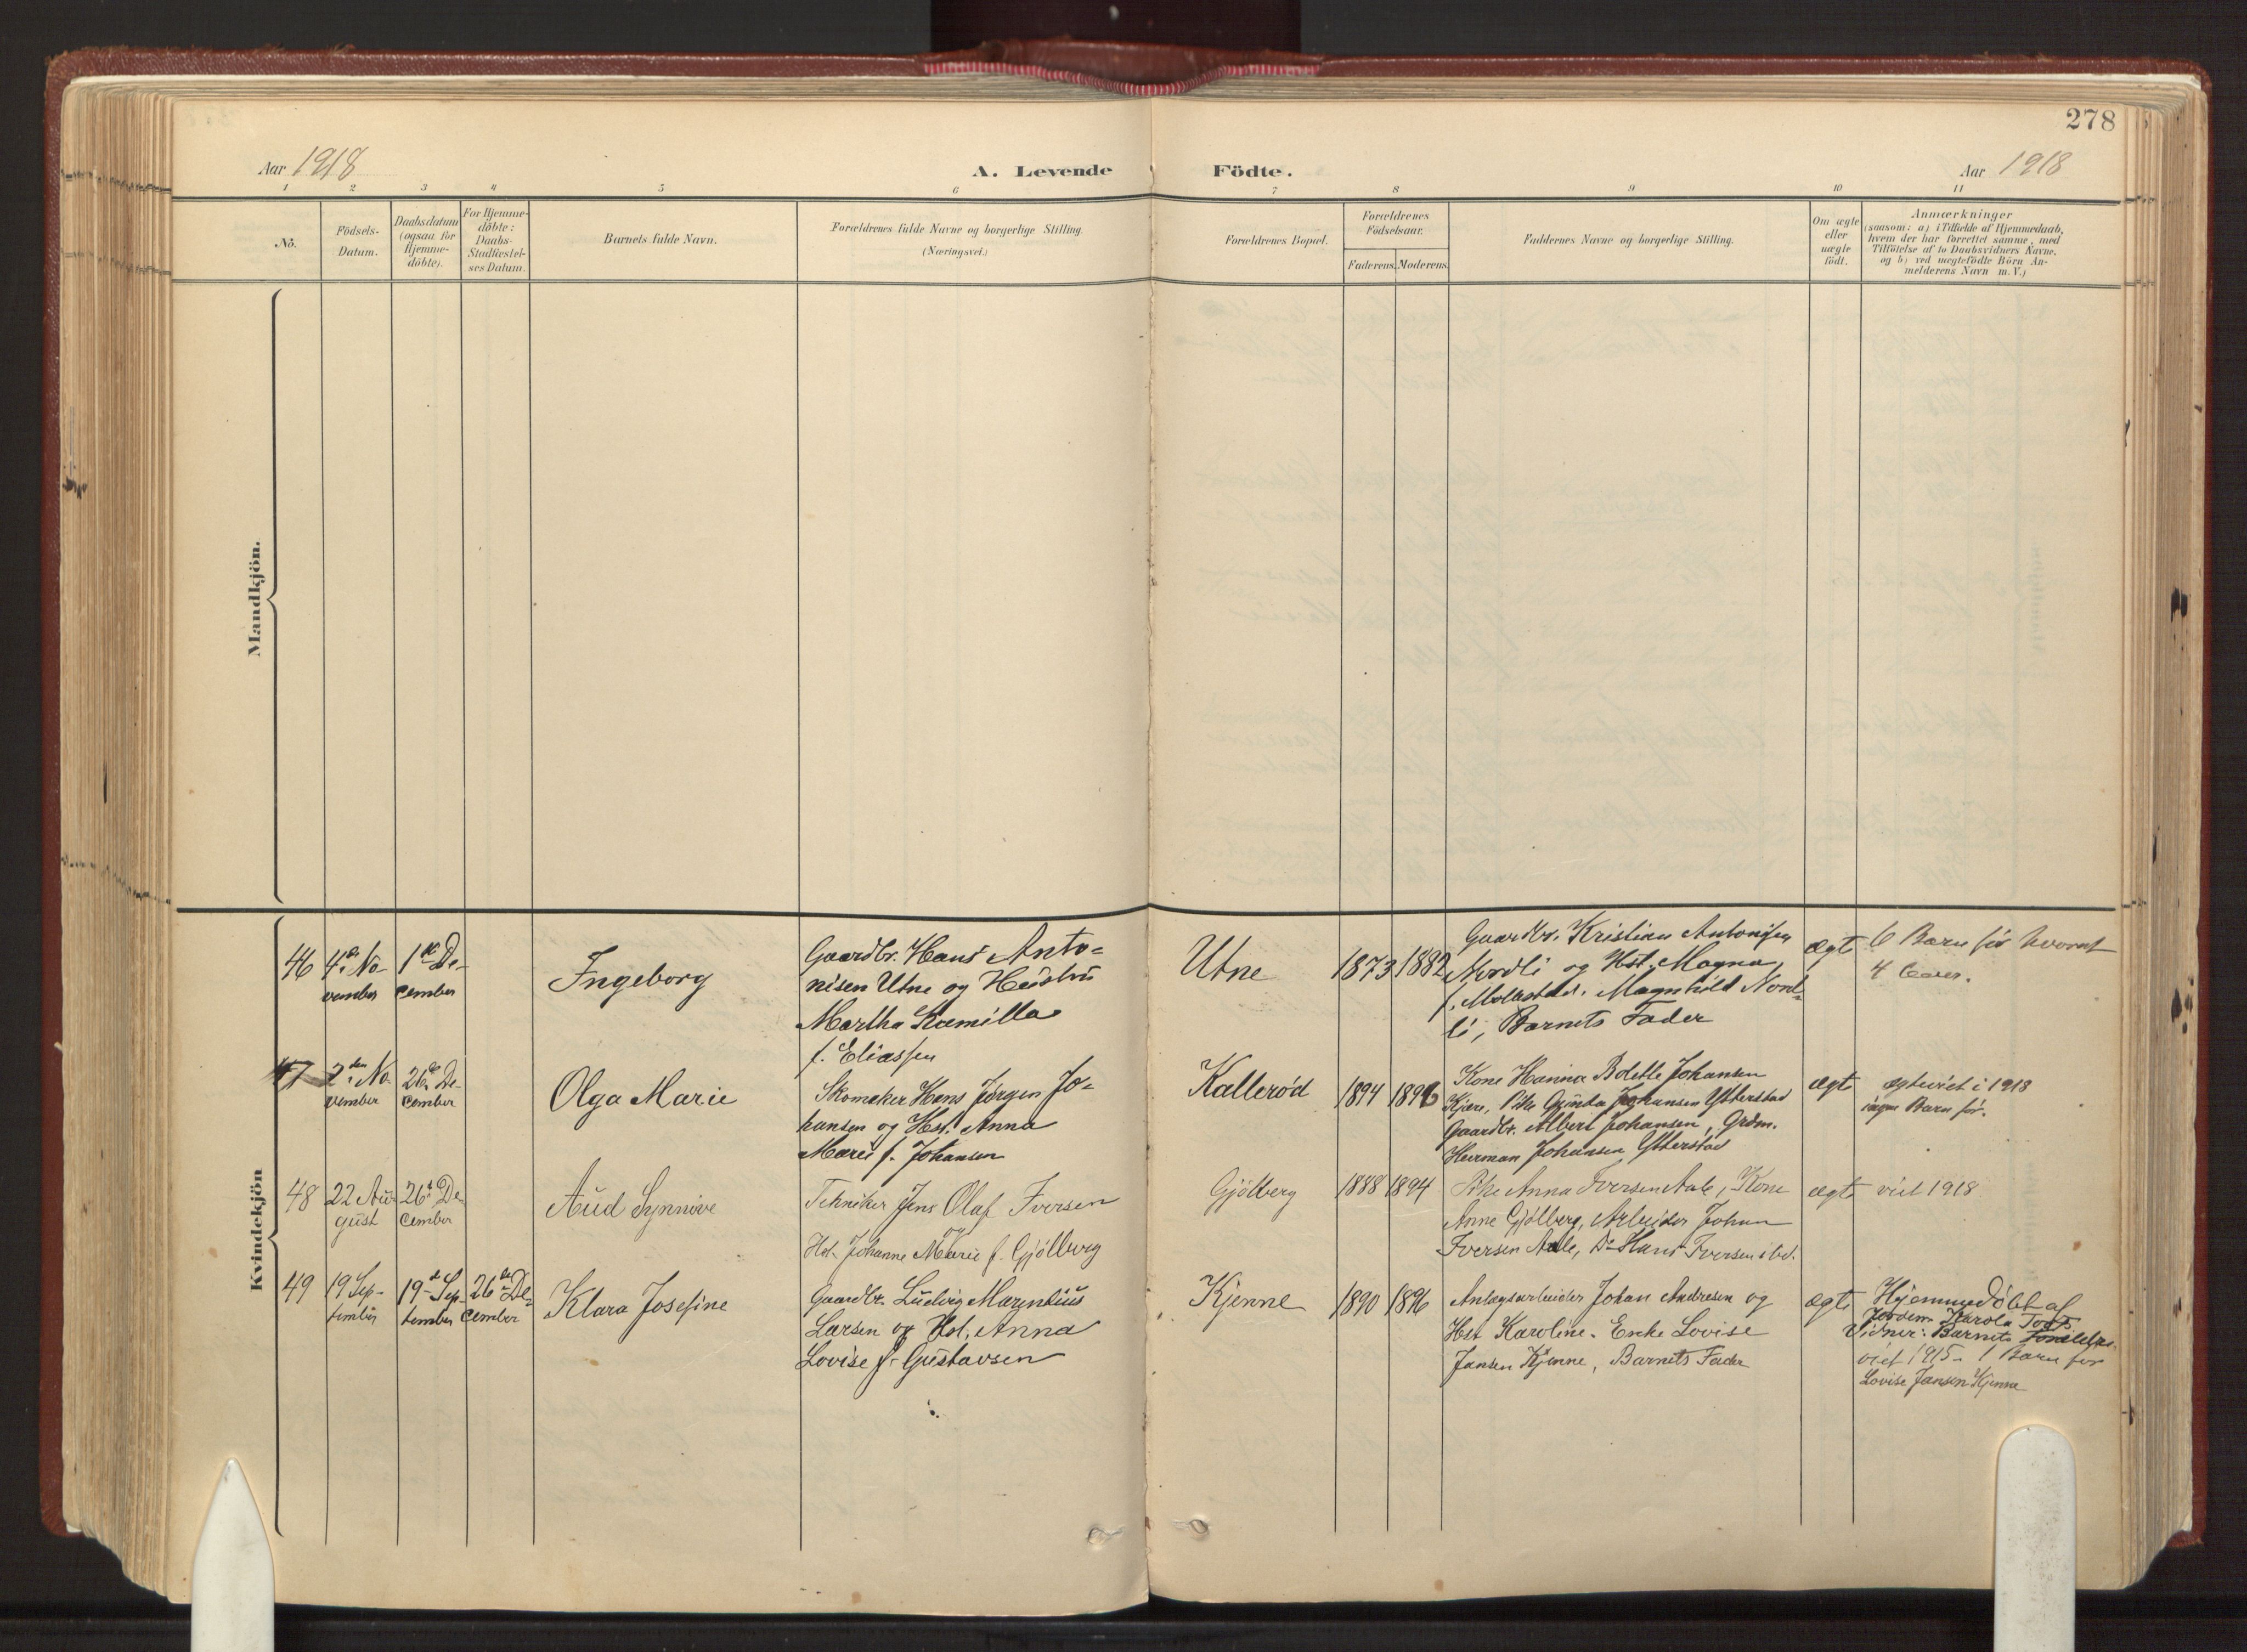 278
Aar 1918
A. Levende Födte.
Aar 1918
1 2 3 4 5 6 7 8 9 10 11
No.
Födsels-
Datum.
Daabsdatum
(ogsaa for
Hjemme-
döbte).
For Hjemme-
döbte:
Daabs-
Stadfæstel-
ses Datum.
Barnets fulde Navn.
Forældrenes fulde Navne og borgerlige Stilling.
(Næringsvei.)
Forældrenes Bopæl.
Forældrenes
Födselsaar.
Faderens. Moderens.
Faddernes Navne og borgerlige Stilling.
Om ægte
eller
uægte
födt.
Anmærkninger
(saasom: a) i Tilfælde af Hjemmedaab,
hvem der har forrettet samme, med
Tilföielse af to Daabsvidners Navne,
og b) ved uægtefödte Börn An-
melderens Navn m. V.)
Mandkjön.
Kvindekjön
46
4de No-
vember
1ste De-
cember
Ingeborg
Gaardbr. Hans Anto-
nisen Utne og Hustru
Martha Kamilla
f. Eliassen
Utne
1873
1882
Gaardbr. Kristian Antonisen
Nordli og Hst. Magna
f. Magnhild Nord-
li, Barnets Fader
ægte
6 Barn før hvoraf
4 lever.
47
2den No-
vember
26de De-
cember
Olga Marie
Skomaker Hans Jørgen Jo-
hansen og Hst. Anna
Marie f. Johansen
Kallerød
1894
Kone Hanna Bolette Johansen
Kjære, Pike Gunda Johansen Ytterstad
Gaardbr. Albert Johansen, Grdm.
Herman Johansen Ytterstad
ægte
egteviet i 1918
ingen Barn før.
48
22 Au-
gust
26de De-
cember
Aud Synnøve
Tekniker Jens Olaf Iversen
og
Hst. Johanne Marie f. Gjölberg
Gjölberg
1888
1894
Pike Anna Iversen Aale, Kone
Anne Gjölberg, Arbeider Johan
Iversen Aale, Do Hans Iversen ibd.
ægte
viet 1918
49
19 Sep-
tember
19de Sep-
tember
26de De-
cember
Klara Josefine
Gaardbr. Ludvig Marentius
Larsen og Hst. Anna
Lovise f. Gustavsen
Kjenne
1890
1896
Anlægsarbeider Johan Andresen og
Hst Karoline. Enke Lovise
Jansen Kjenne, Barnets Fader
ægte
Hjemmedöbt af
Jordem. Karola
Vidner: Barnets Forældre
viet 1915. 1 Barn før
Lovise Jansen Kjenne